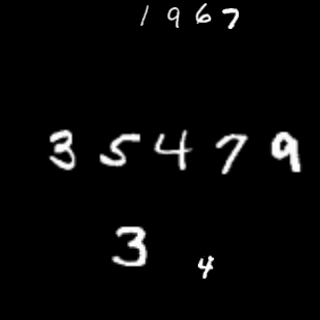 1967
35479
3 4